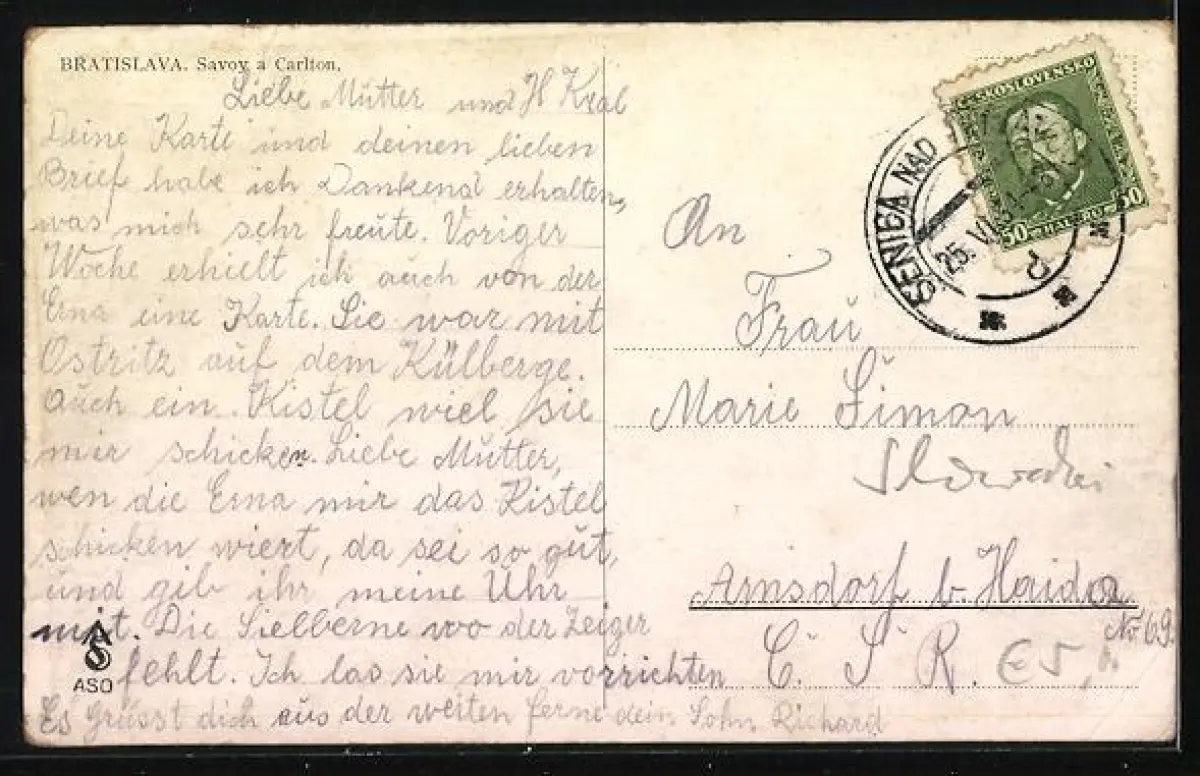 BRATISLAVA. Savoy a Carlton.
Liebe Mutter und H Kral
Deine Karte und deinen lieben
Brief habe ich Dankend erhalten,
was mich sehr freute. Voriger
Woche erhielt ich auch von der
Erna eine Karte. Sie war mit
Ostritz auf dem Külberge.
Auch ein Kistel wiel sie
mir schicken. Liebe Mutter,
wen die Erna mir das Kistel
schicken wiert, da sei so gut,
und gib ihr meine Uhr
mit. Die Sielberne wo der Zeiger
fehlt. Ich las sie mir vorrichten
Es Grüsst dich aus der weiten ferne dein Sohn Richard
ASO
ČESKOSLOVENSKO
50 HALERU 50
SENICA NAD
25. VI
An
Frau
Marie Simon
Arnsdorf b. Haida
No 69
Č. S. R.